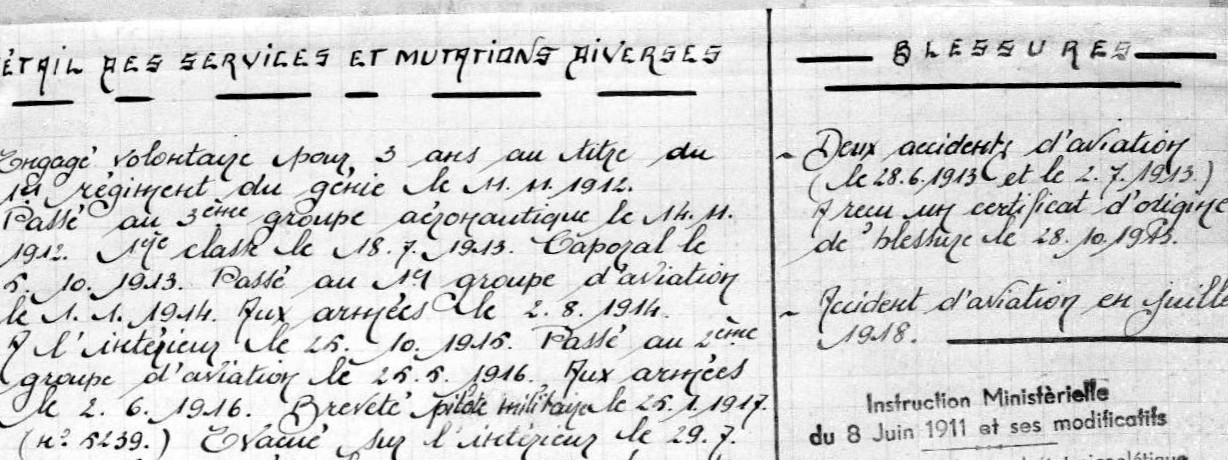 ÉTAIL DES SERVICES ET MUTATIONS DIVERSES
Engagé volontaire pour 3 ans au titre du
1er régiment du génie le 11. 11. 1912.
Passé au 3ème groupe aéronautique le 14. 11.
1912. 1ère classe le 18. 7. 1913. Caporal le
5. 10. 1913. Passé au 1er groupe d'aviation
le 1. 1. 1914. Aux armées le 2. 8. 1914.
A l'intérieur le 25. 10. 1915. Passé au 2ème
groupe d'aviation le 25. 5. 1916. Aux armées
le 2. 6. 1916. Breveté pilote militaire le 25. 1. 1917.
(n° 5239.) Evacué sur l'intérieur le 29. 7.
BLESSURES
- Deux accidents d'aviation
(le 28. 6. 1913 et le 2. 7. 1913.)
A reçu un certificat d'origine
de blessure le 28. 10. 1913.
- Accident d'aviation en juille
1918.
Instruction Ministèrielle
du 8 Juin 1911 et ses modificatifs